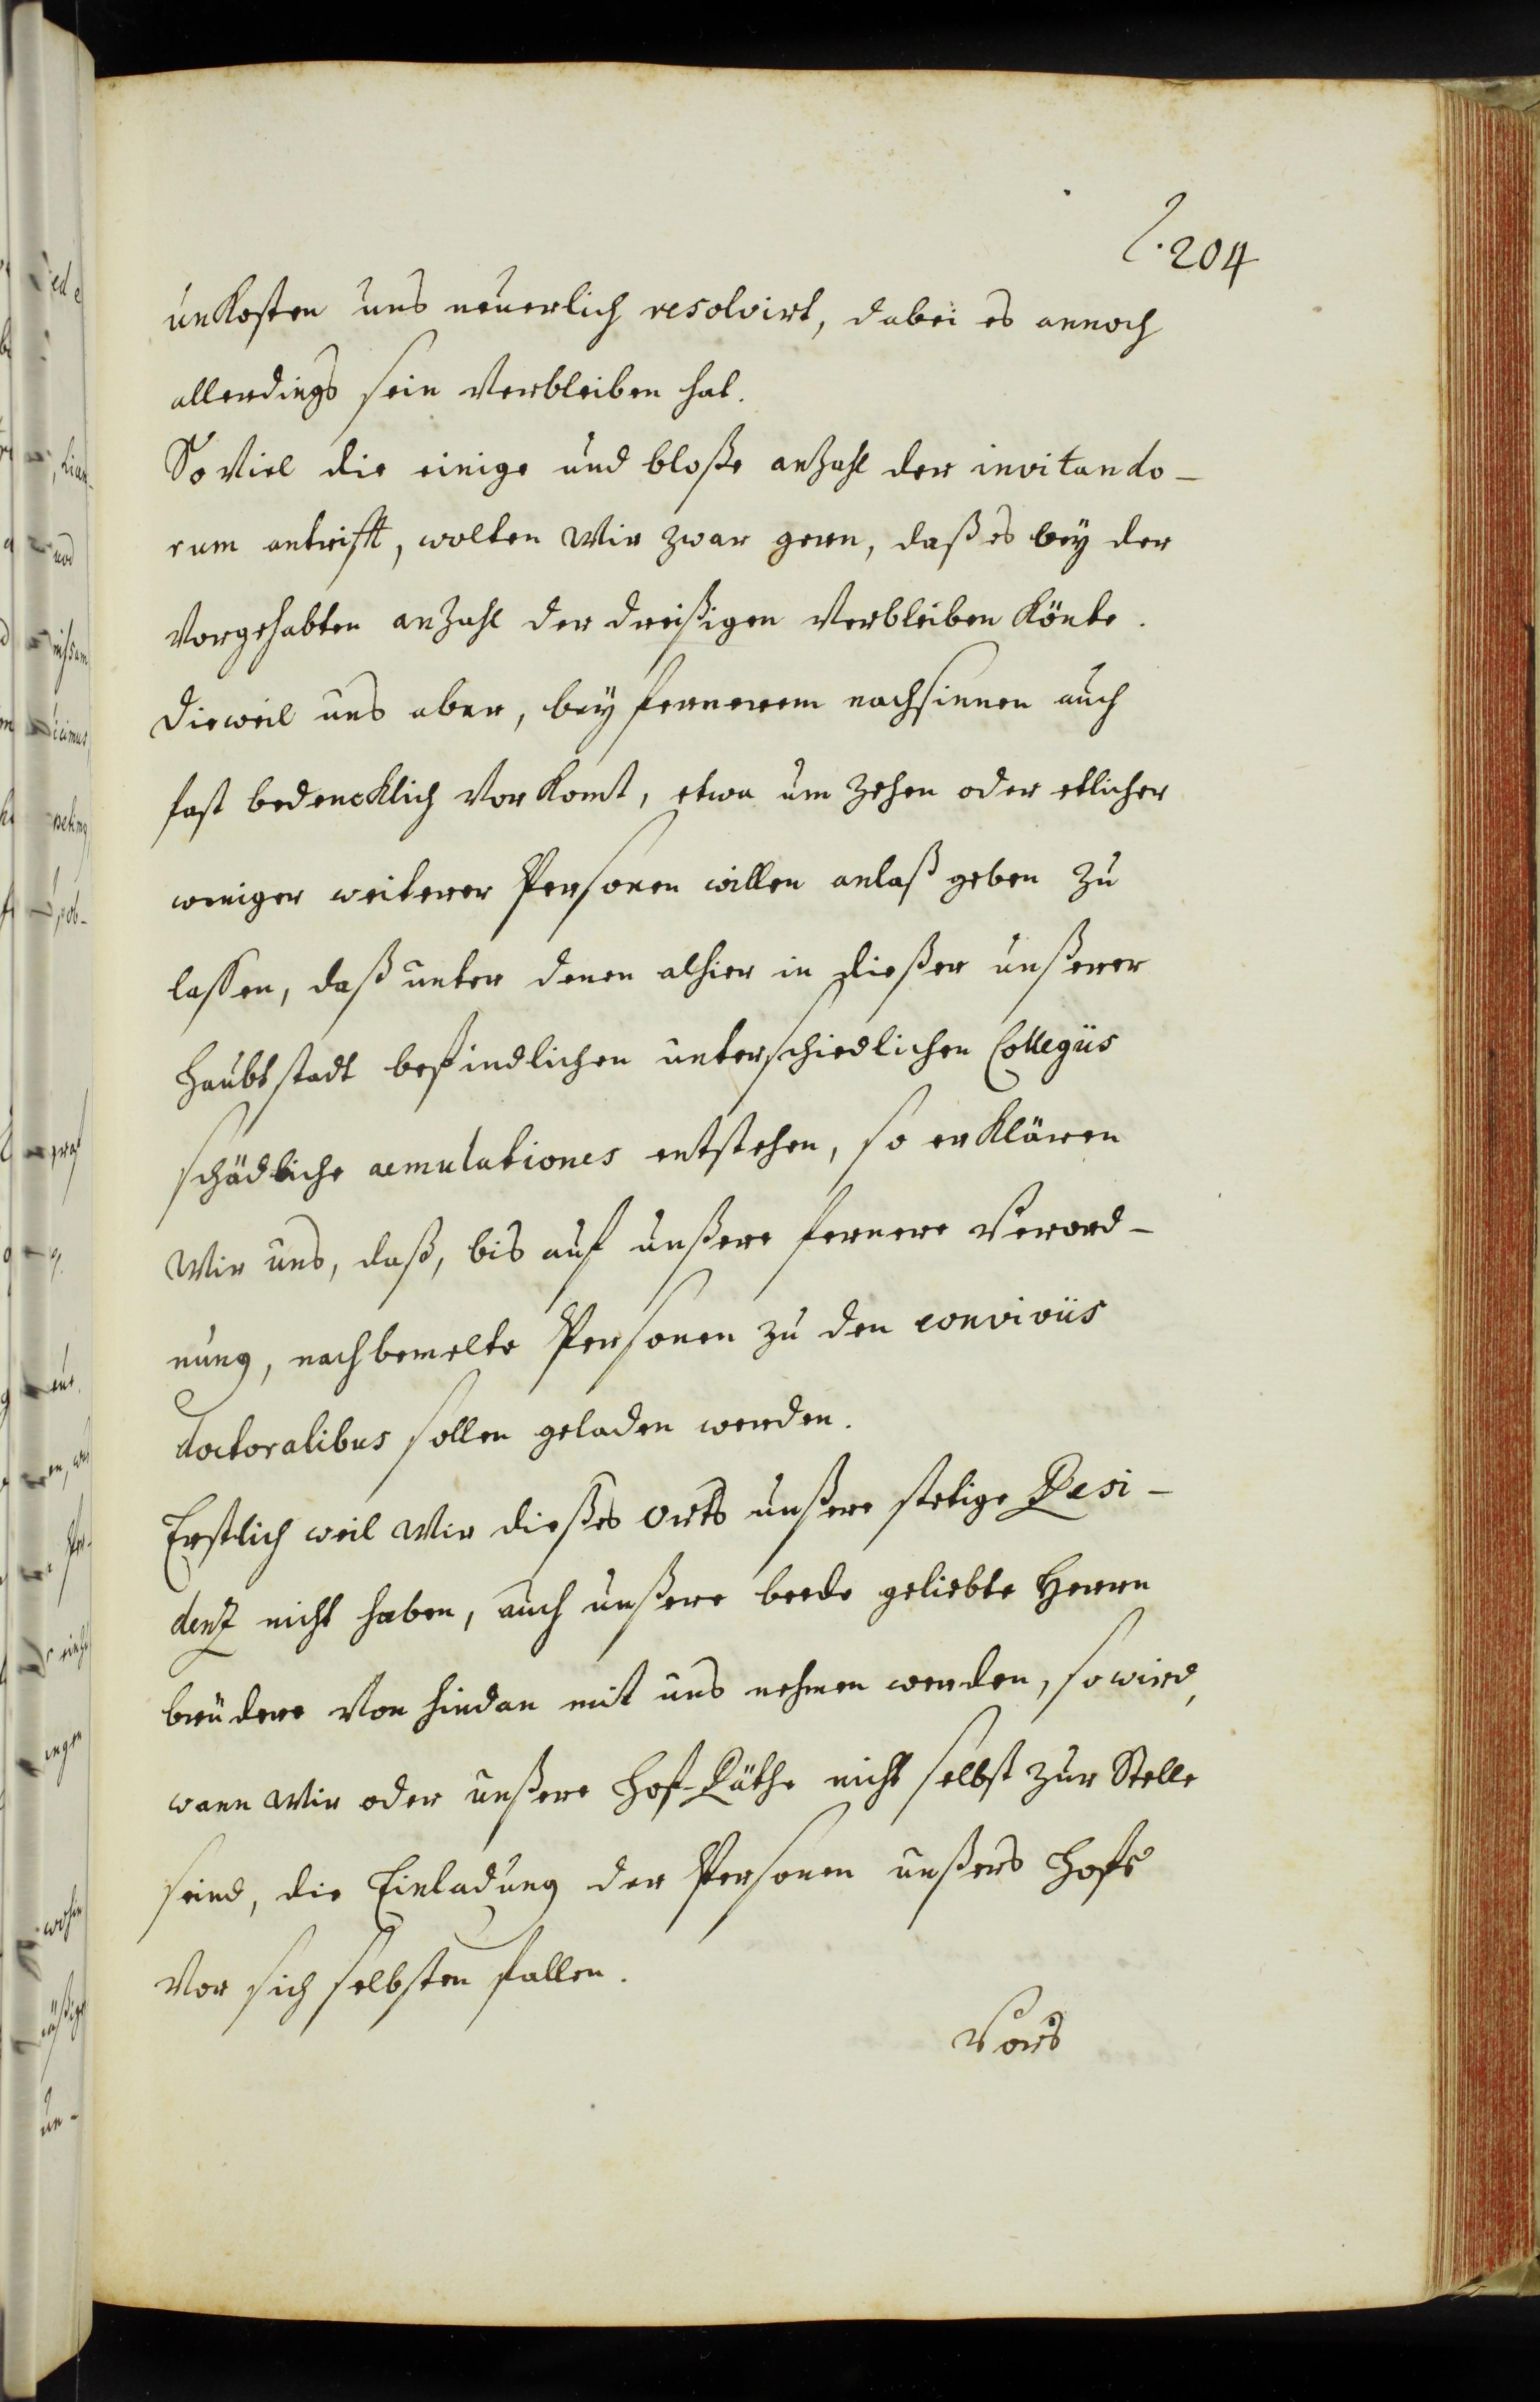 l. 204
unKosten uns neuerlich resolvirt, dabei es annoch
allerdings sein Verbleiben hat.
So Viel die einige und bloße anZahl der invitando-
rum antrifft, wolten Wir zwar gern, daß es bey der
Vorgehabten anZahl der dreißigen Verbleiben Könte.
dieweil uns aber, bey fernerem nachsinnen auch
fast bedencklich Vor Komt, etwa um Zehen oder etlicher
weniger weiterer Personen willen anlaß geben Zu
laßen, daß unter denen alhier in dießer unßerer
Haubtstadt befindlichen unterschiedlichen Collegiis
schädliche aemulationes entstehen, so erKlären
Wir uns, daß, bis auf unßere fernere Verord-
nung, nachbemelte Personen zu den conviviis
doctoralibus sollen geladen werden.
Erstlich weil Wir dießes Orts unßere stetige Resi-
denz nicht haben, auch unßere beede geliebte Herrn
brüdere Von hindan mit uns nehmen werden, so wird,
wann Wir oder unßere Hof-Räthe nicht selbst zur Stelle
seind, die Einladung der Personen unßers Hofs
Vor sich selbsten fallen.
Vors